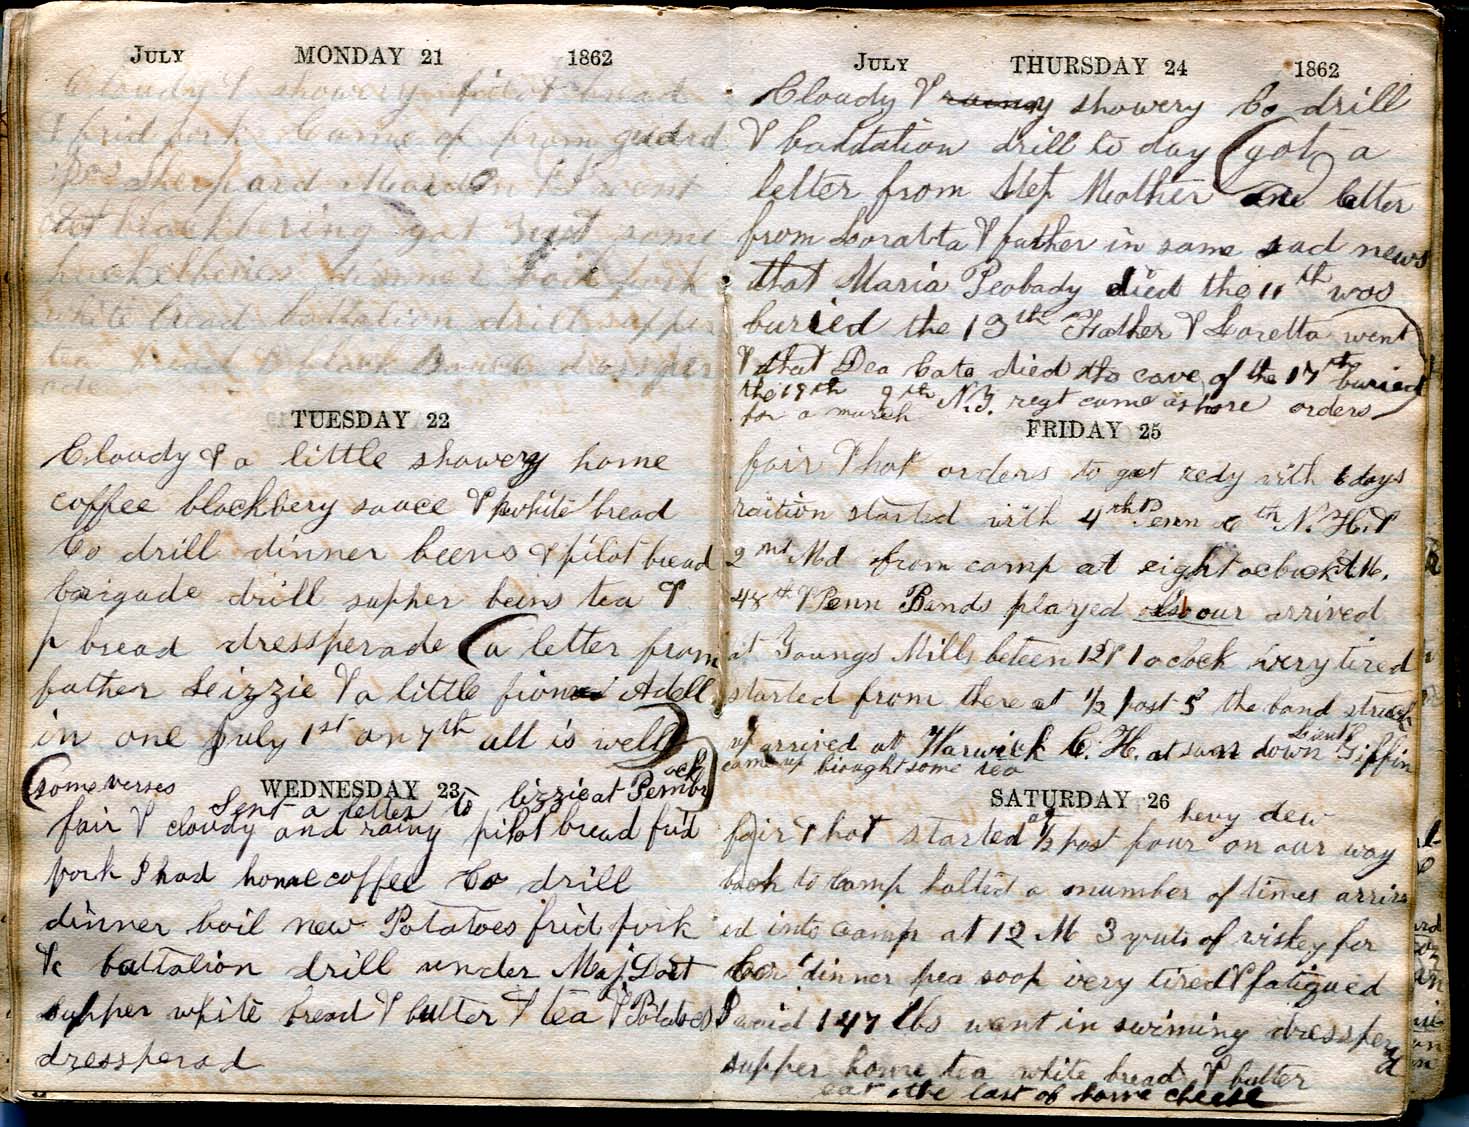 July MONDAY 21 1862
Cloudy & showery pilot bread
& frid pork came of from guard
Shephard & I went
out blackbering got 3 qut some
huckelberies dinner boil pork
white bread battalion drill supper
tea bread & black dressper
ade
TUESDAY 22
Cloudy & a little showery home
coffee blackbery sauce & white bread
Co drill dinner beens & pilot bread
baigade drill supher beins tea &
p bread dressperade (a letter from
father Leizzie & a little from Adell
in one July 1st an 7th all is well)
(some verses
WEDNESDAY 23
Sent a letter to lizzie at Pembr
ock)
fair & cloudy and rainy pilot bread frid
pork I had home coffee Co drill
dinner boil new Potatoes frid pork
&c battalion drill under Maj Dort
supper white bread & butter & tea & Potatoes
dressperad
July THURSDAY 24 1862
Cloudy & rainy showery Co drill
& battation drill to day (got) a
letter from Step Mother one letter
from Loratta & father in same sad news
that Maria Peabady died the 11th was
buried the 13th Father & Loretta went
& that Dea Cate died the eave of the 17th buried
the 19th 9th N.J. regt came ashore orders)
for a march
FRIDAY 25
fair & hot orders to get redy with 6 days
raition started with 4th Penn 6th N.H. &
2nd Md from camp at eight oclock A.M.
48th & Penn Bands played also our arrived
at Youngs Mills beteen 12 & 1 oclock very tired
started from there at 1/2 past 5 the band struck
up arrived at Warwick C.H. at sun down Lieut Giffin
came up brought some tea
SATURDAY 26
hevy dew
fair & hot started at 1/2 past four on our way
back to camp halted a number of times arriv
ed into camp at 12 M 3 quts of wiskey for
Co dinner pea soop very tired & fatigued
I waid 147 lbs went in swiming dressper
ad
supper home tea white bread & butter
eat the last of home cheese